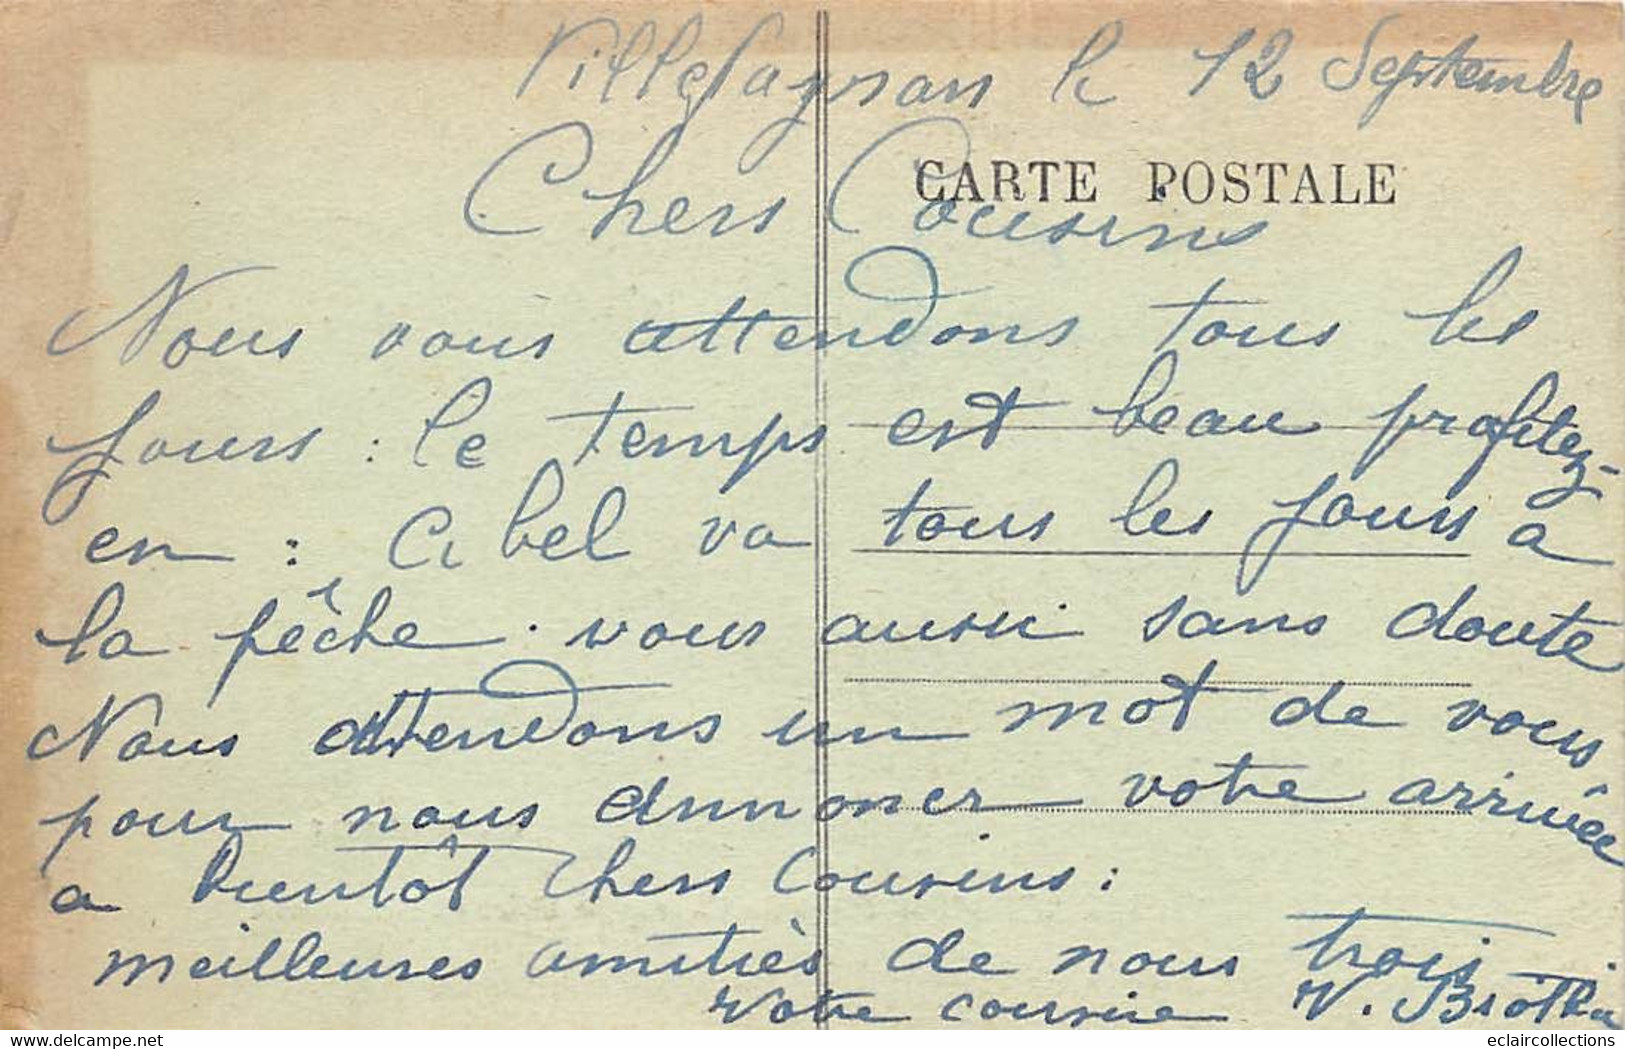 Villefagnan le 12 Septembre
CARTE POSTALE
Chers Cousins
Nous vous attendons tous les
jours : le temps est beau profitez-
en : Abel va tous les jours a
la pêche. vous aussi sans doute
Nous attendons un mot de vous
pour nous annoncer votre arrivée
a bientôt Chers Cousins :
meilleures amitiés de nous trois
Votre cousine V.
www.delcampe.net
eclaircollections